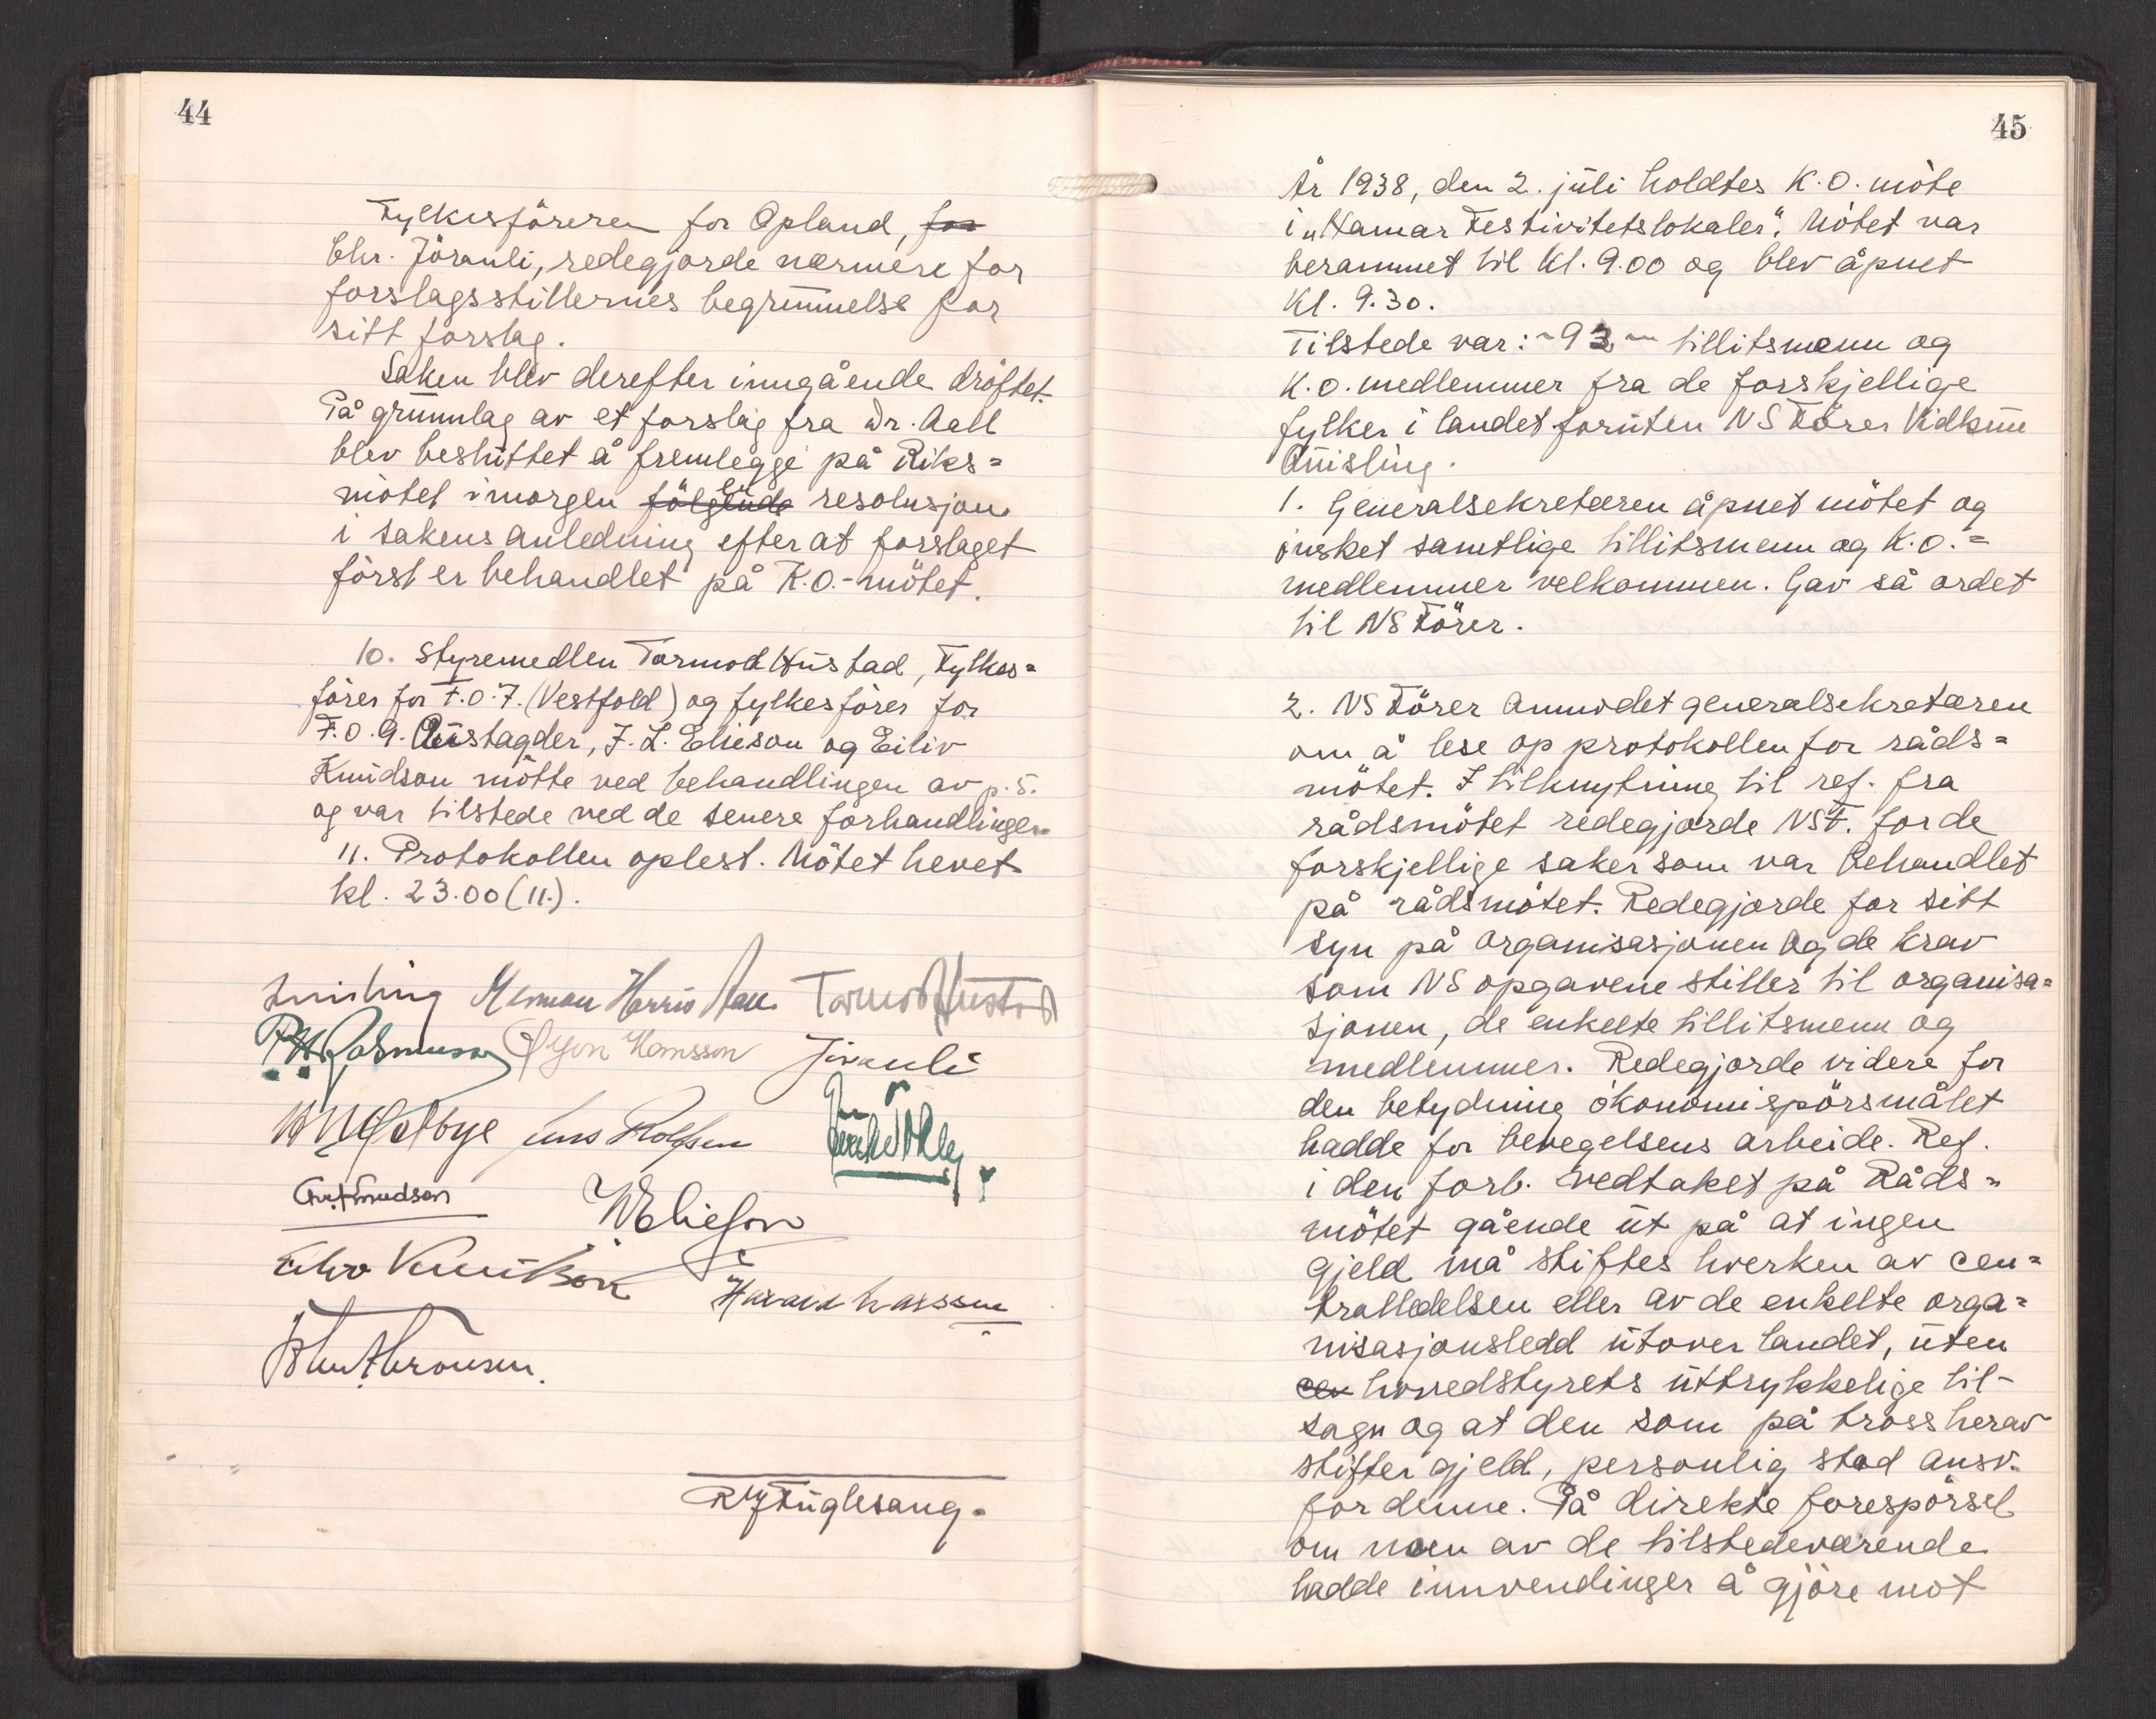 44
Fylkesföreren for Opland, for
Chr. Jöranli, redegjorde nærmere for
forslagsstillernes begrunnelse for
sitt forslag.
Saken blev derefter inngående dröftet.
På grunnlag av et forslag fra Dr. Aall
blev besluttet å fremlegge på Riks=
mötet imorgen fölgende en resolusjon
i sakens anledning efter at forslaget
först er behandlet på K.O.-mötet.
10. Styremedlem Tormod Hustad, Fylkes=
förer for F.O.7. (Vestfold) og fylkesförer for
F.O.9. Austagder, J. L. Elieson og Eiliv
Knudson mötte ved behandlingen av p. 5.
og var tilstede ved de senere forhandlinger.
11. Protokollen oplest. Mötet hevet
kl. 23.00 (11.).
Quisling Herman Harris Aall Tormod Hustad
Orjon Hamsson Jöranli
Jens Rolfsen
Knudson
Elieson
Eiliv Knudson
R J Fuglesang.
45
År 1938, den 2. juli holdtes K.O. möte
i „Hamar Festivitetslokaler". Mötet var
berammet til kl. 9.00 og blev åpnet
kl. 9.30.
Tilstede var: ~ 93 ~ tillitsmenn og
K.O. medlemmer fra de forskjellige
fylker i landet foruten NS Förer Vidkun
Quisling.
1. Generalsekretæren åpnet mötet og
önsket samtlige tillitsmenn og K.O.=
medlemmer velkommen. Gav så ordet
til NS Förer.
2. NS Förer anmodet generalsekretæren
om å lese op protokollen for råds=
mötet. I tilknytning til ref. fra
rådsmötet redegjorde NSF. for de
forskjellige saker som var behandlet
på rådsmötet. Redegjorde for sitt
syn på organisasjonen og de krav
som NS opgavene stiller til organisa=
sjonen, de enkelte tillitsmenn og
medlemmer. Redegjorde videre for
den betydning ökonomispörsmålet
hadde for bevegelsens arbeide. Ref.
i den forb. vedtaket på Råds=
mötet gående ut på at ingen
gjeld må stiftes hverken av cen=
tralledelsen eller av de enkelte orga=
nisasjonsledd utover landet, uten
cen hovedstyrets uttrykkelige til-
sagn og at den som på tross herav
stifter gjeld, personlig stod ansv.
for denne. På direkte forespörsel
om noen av de tilstedeværende
hadde innvendinger å gjöre mot